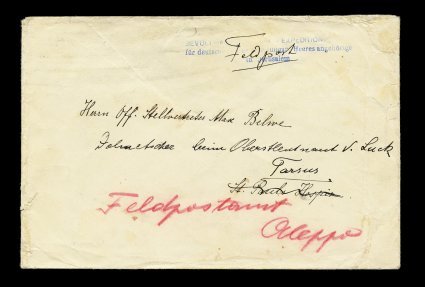 BEVOLL EXPEDITION
für deutsche Heeresangehörige
in Jerusalem
Feldpost
Herrn Off. Stellvertreter Max Belwe
Dolmetscher beim Oberstleutnant v. Luck
Tarsus
St. Paul's Hospiz
Feldpostamt
Aleppo